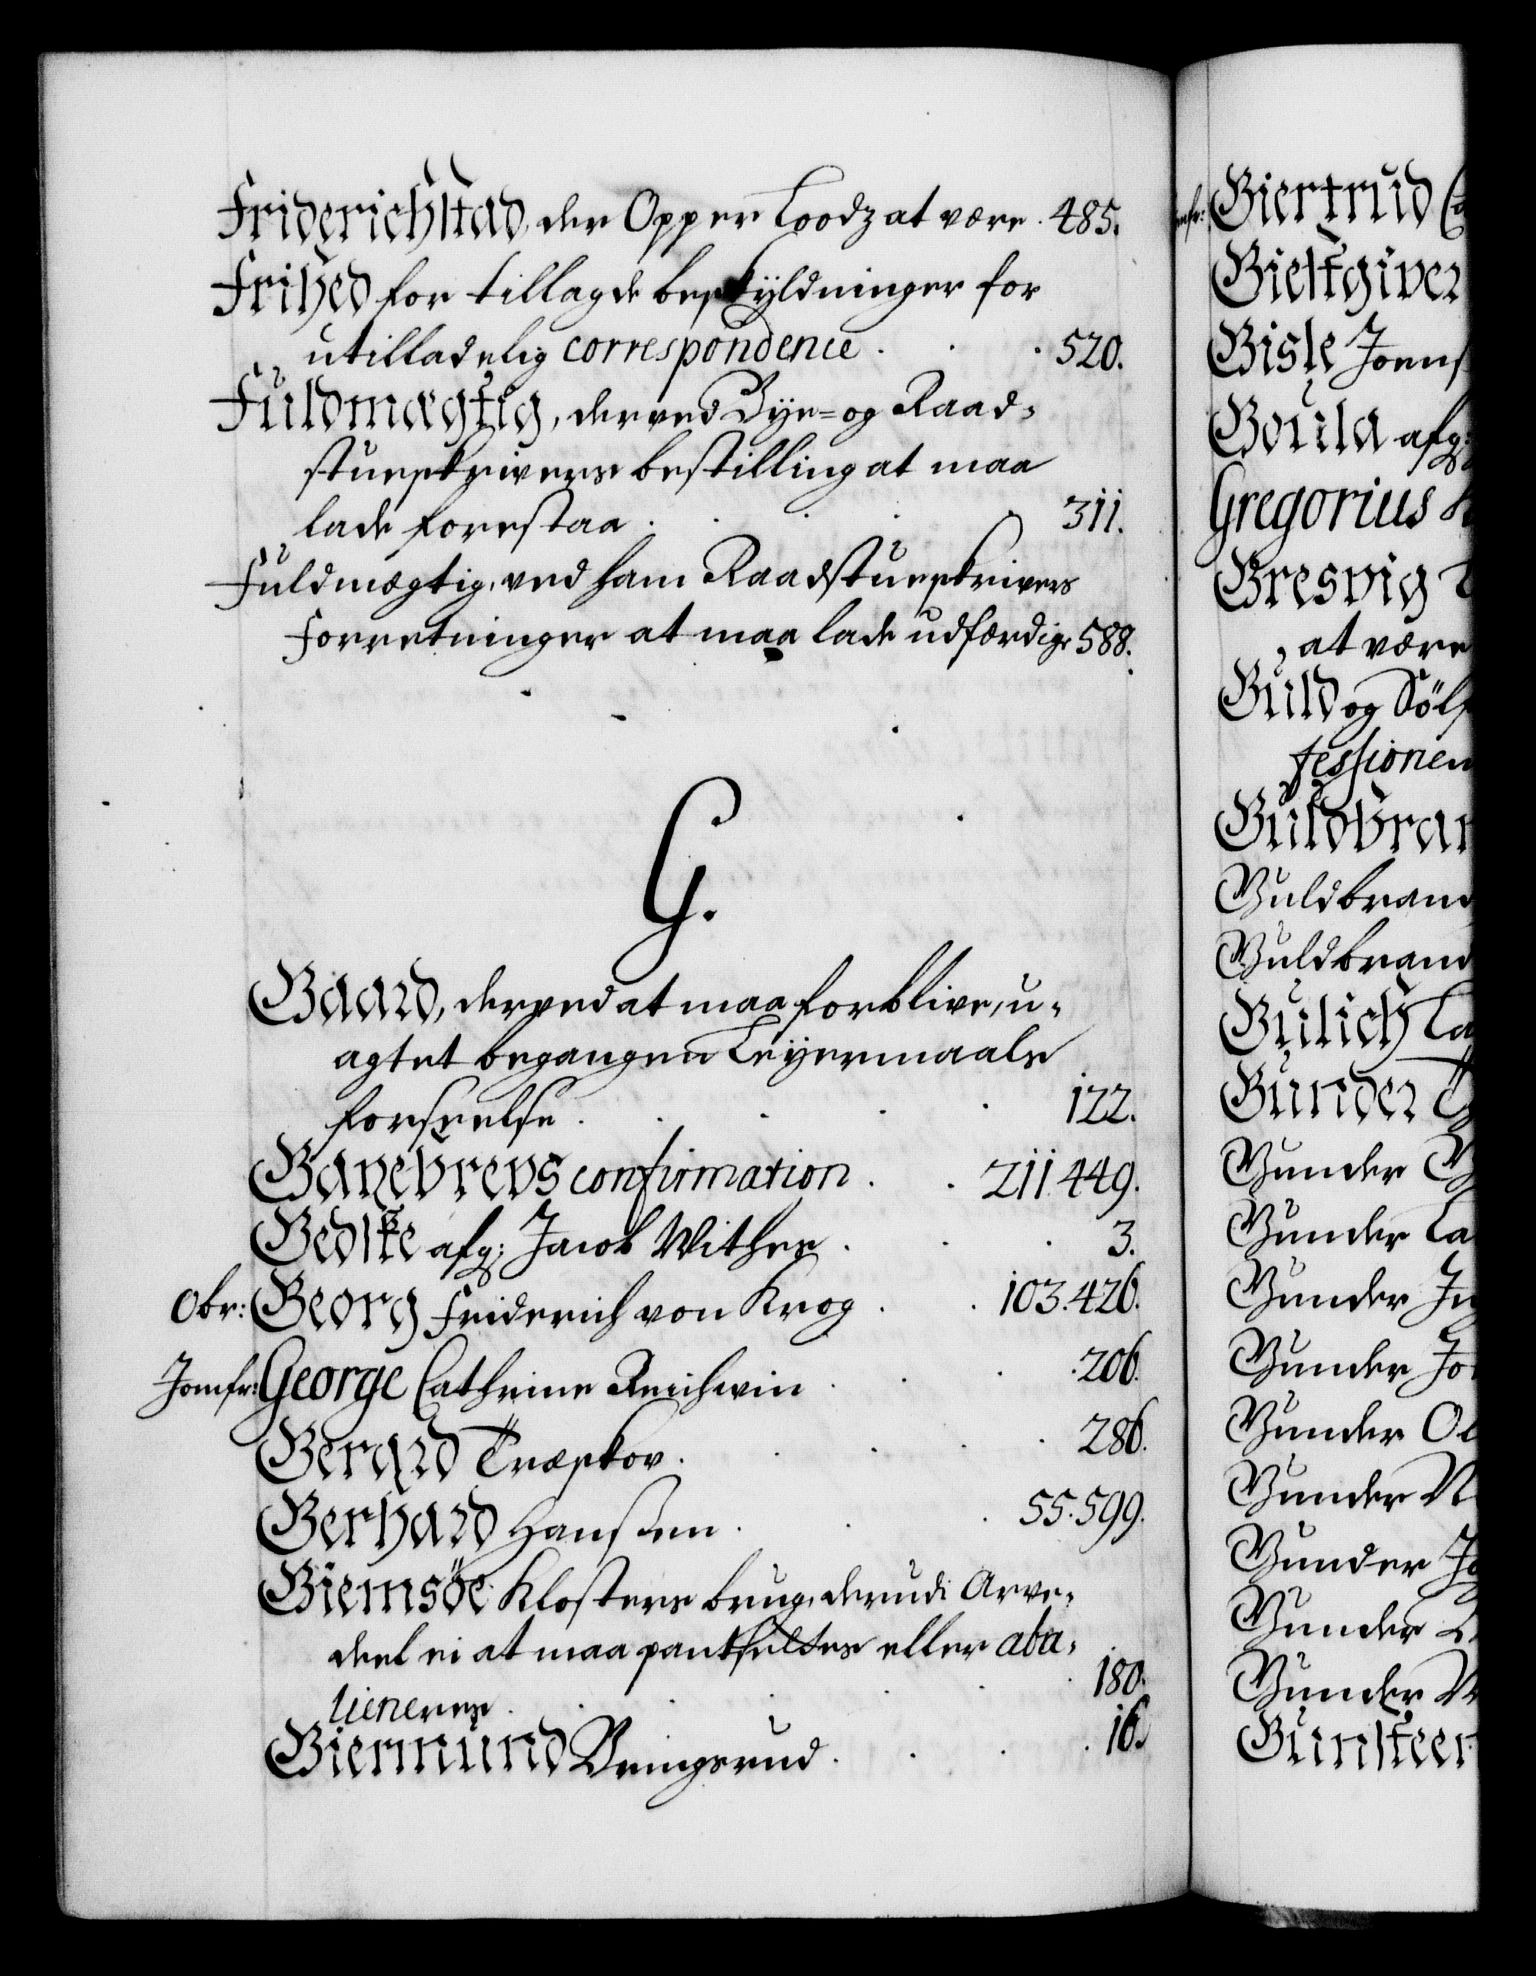 Friderichstad, der Opper Loodz at være . 485.
Frihed for tillagde beskyldninger for
utilladelig correspondence . . . 520.
Fuldmægtig, der ved Bye= og Raad=
stueskrivers bestilling at maa
lade forestaa . . . . . 311.
Fuldmægtig, ved ham Raadstueskrivers
Forretninger at maa lade udfærdige 588.
G.
Gaard, derved at maa forblive, u=
agtet begangen Leyermaals
forseelse . . . . . 122.
Gavebrevs confirmation . . 211.449.
Gedske afg: Jacob Withes . . . 3.
Obr: Georg Friderich von Krog . . 103.426.
Jomfr: George Cathrine Reichwin . . . . 206.
Gerard Træskov . . . . . 286.
Gerhard Hanssen . . . 55.599.
Giemsöe Klosters brug, derudi Arve=
deel ei at maa pantsettes eller aba=
lieneres . . . . . 180.
Giermund Bringsrud . . . . 16.
Giertrud
Gieltgiver
Gisle Joens
Goula afg:
Gregorius
Gresvig
at være
Guld og Sölf
fessionen
Guldbran
Guldbrand
Guldbrand
Gulich La
Gunder
Gunder
Gunder La
Gunder
Gunder Jo
Gunder
Gunder
Gunder
Gunder
Gunder
Gunsteen